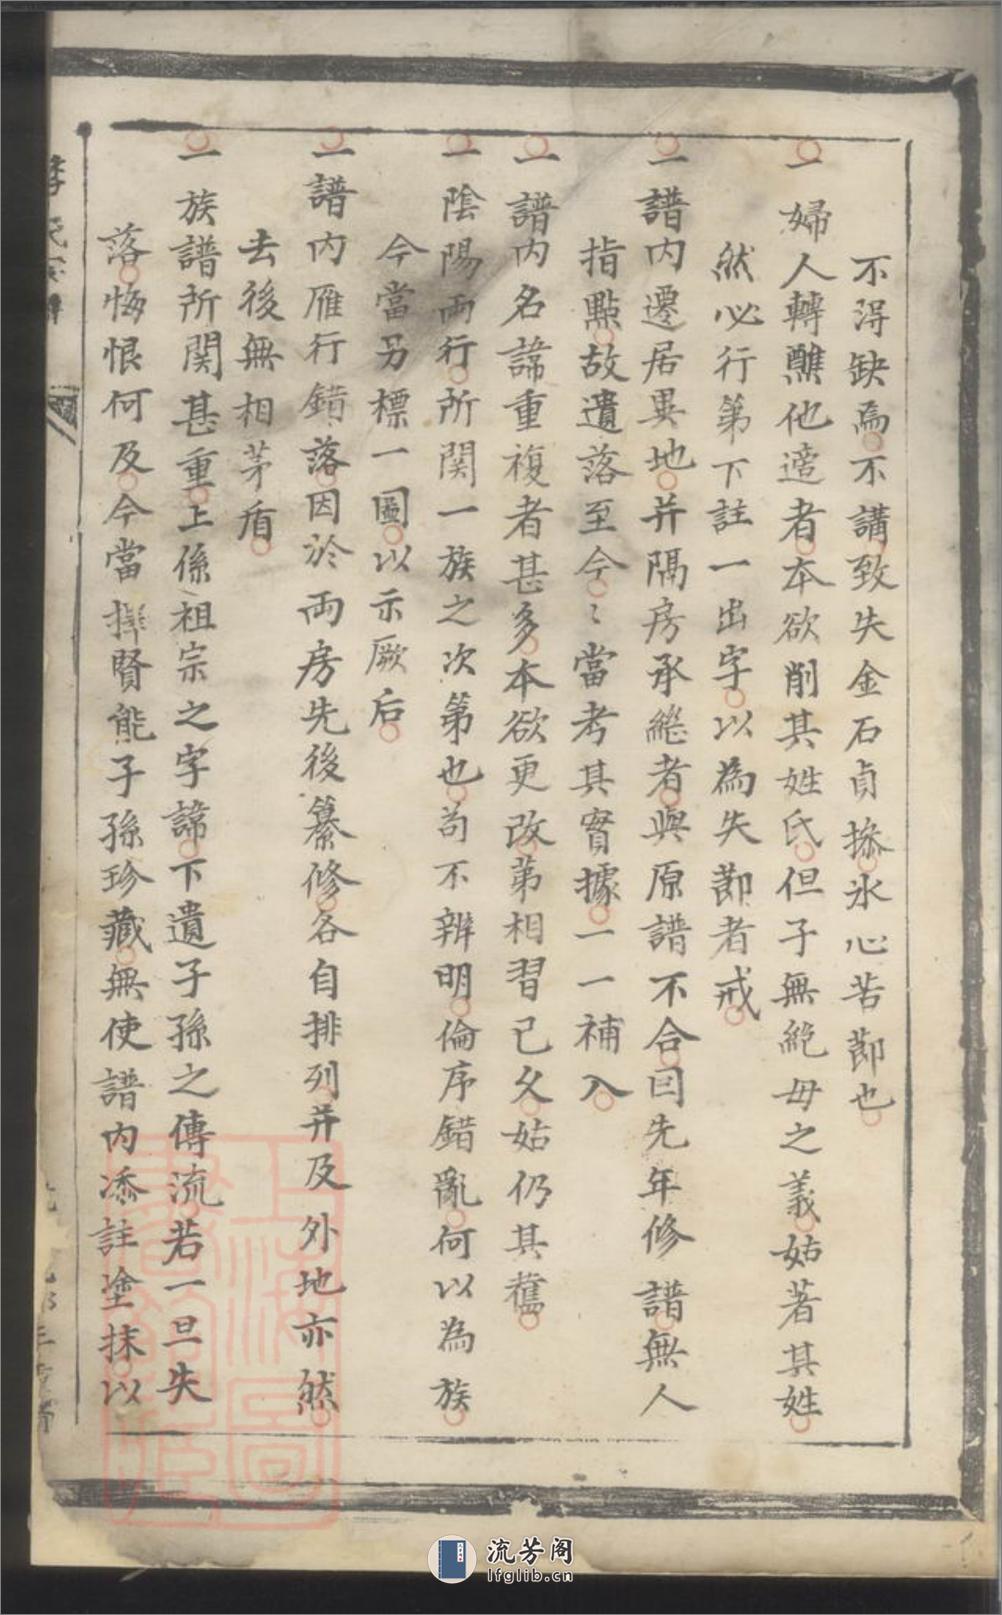 不淂缺焉不講致失金石貞摻氷心苦莭也
一婦人轉醮他適者本欲削其姓氏但子無絶母之義姑著其姓
然必行第下註一出字以為失莭者戒
一譜内遷居異地并隔房承継者與原譜不合囙先年修譜無人
指點故遺落至今〻當考其實據一一補入
一譜内名諱重複者甚多本欲更改苐相習已久姑仍其舊
一陰陽両行所関一族之次第也苟不辨明倫序錯亂何以為族
今當另標一圖以示厥后
一譜内雁行錯落因於両房先後纂修各自排列并及外地亦然
去後無相茅盾
一族譜所関甚重上係祖宗之字諱下遺子孫之傳流若一旦失
落悔恨何及今當擇賢能子孫珍藏無使譜内添註塗抹以
李氏宗譜
上海圖書館藏
流芳阁
lfglib.cn